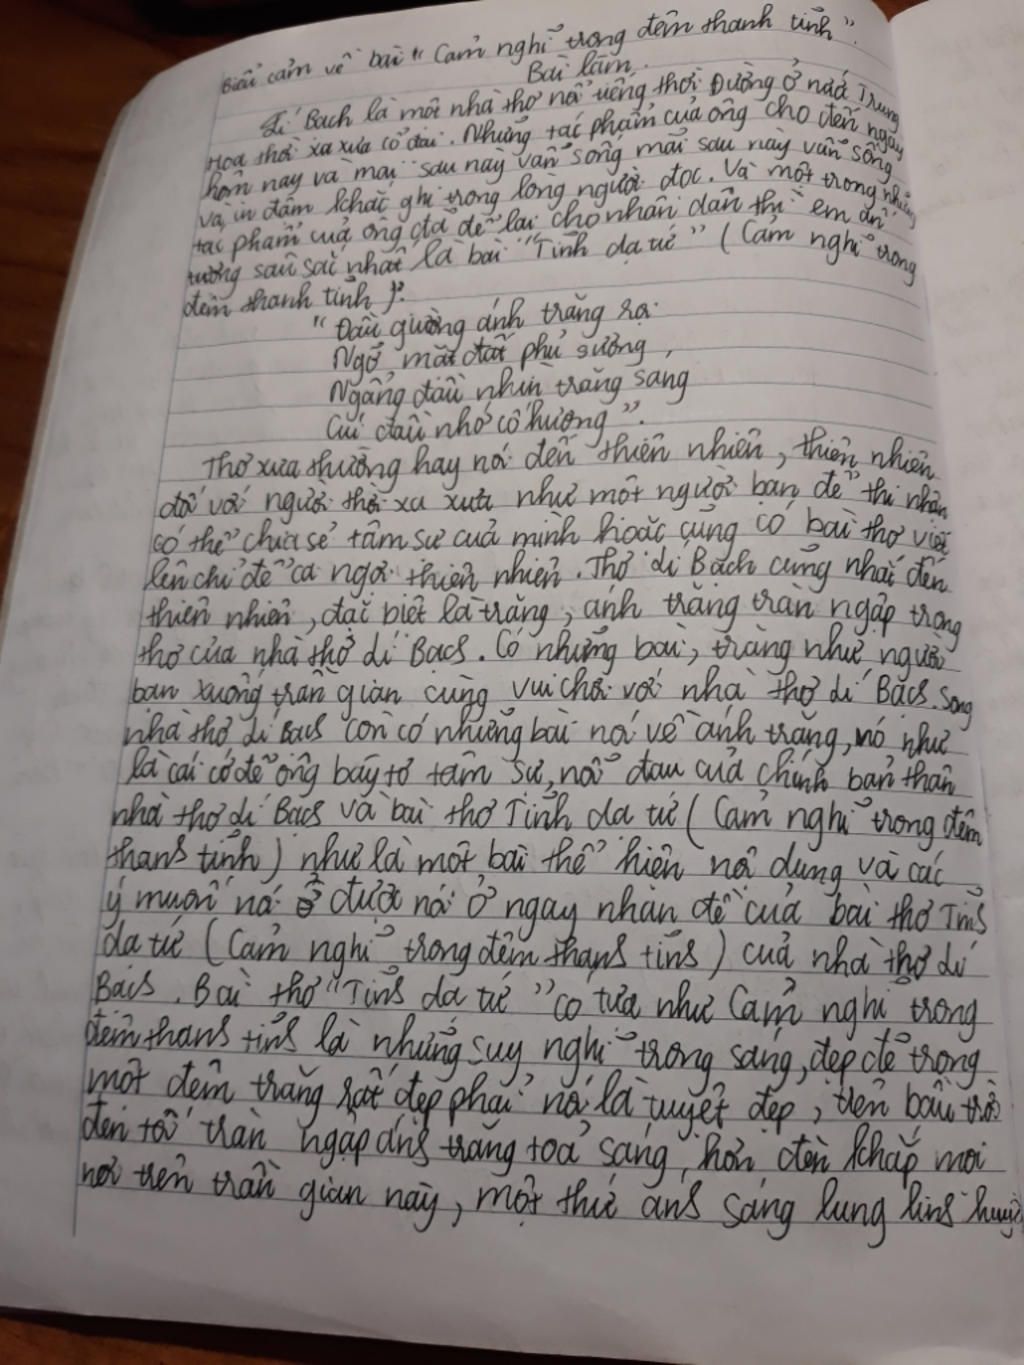 Biểu cảm về bài "Cảm nghĩ trong đêm thanh tĩnh".
Bài làm.
Lí Bạch là một nhà thơ nổi tiếng thời Đường ở nước Trung
Hoa thời xa xưa cổ đại. Những tác phẩm của ông cho đến ngày
hôm nay và mai sau này vẫn sống mãi sau này vẫn sống
và in đậm khắc ghi trong lòng người đọc. Và một trong những
tác phẩm của ông đã để lại cho nhân dân thì em ấn
tượng sâu sắc nhất là bài "Tĩnh dạ tứ" (Cảm nghĩ trong
đêm thanh tĩnh):
"Đầu giường ánh trăng rọi
Ngỡ mặt đất phủ sương,
Ngẩng đầu nhìn trăng sáng
Cúi đầu nhớ cố hương".
Thơ xưa thường hay nói đến thiên nhiên, thiên nhiên
đối với người thời xa xưa như một người bạn để thi nhân
có thể chia sẻ tâm sự của mình hoặc cũng có bài thơ viết
lên chỉ để ca ngợi thiên nhiên. Thơ Lí Bạch cũng nhắc đến
thiên nhiên, đặc biệt là trăng, ánh trăng tràn ngập trong
thơ của nhà thơ Lí Bạch. Có những bài, trăng như người
bạn xuống trần gian cùng vui chơi với nhà thơ Lí Bạch. Song
nhà thơ Lí Bạch còn có những bài nói về ánh trăng, nó như
là cái cớ để ông bày tỏ tâm sự, nỗi đau của chính bản thân
nhà thơ Lí Bạch và bài thơ Tĩnh dạ tứ (Cảm nghĩ trong đêm
thanh tĩnh) như là một bài thể hiện nội dung và các
ý muốn nói ở được nói ở ngay nhan đề của bài thơ Tĩnh
dạ tứ (Cảm nghĩ trong đêm thanh tĩnh) của nhà thơ Lí
Bạch. Bài thơ "Tĩnh dạ tứ" có tựa như Cảm nghĩ trong
đêm thanh tĩnh là những suy nghĩ trong sáng, đẹp đẽ trong
một đêm trăng rất đẹp phải nói là tuyệt đẹp, trên bầu trời
đen tối tràn ngập ánh trăng toả sáng, hơn đèn khắp mọi
nơi trên trần gian này, một thứ ánh sáng lung linh